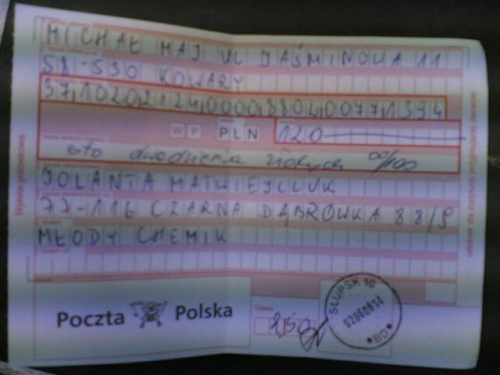 MICHAŁ MAJ UL JAŚMINOWA 11
58-530 KOWARY
37102021240000880400771394
WP PLN 120
sto dwadzieścia złotych 00/100
JOLANTA MATWIEJCZUK
77-116 CZARNA DĄBRÓWKA 88/9
MŁODY CHEMIK
Poczta Polska
2,50
SŁUPSK 10
BD